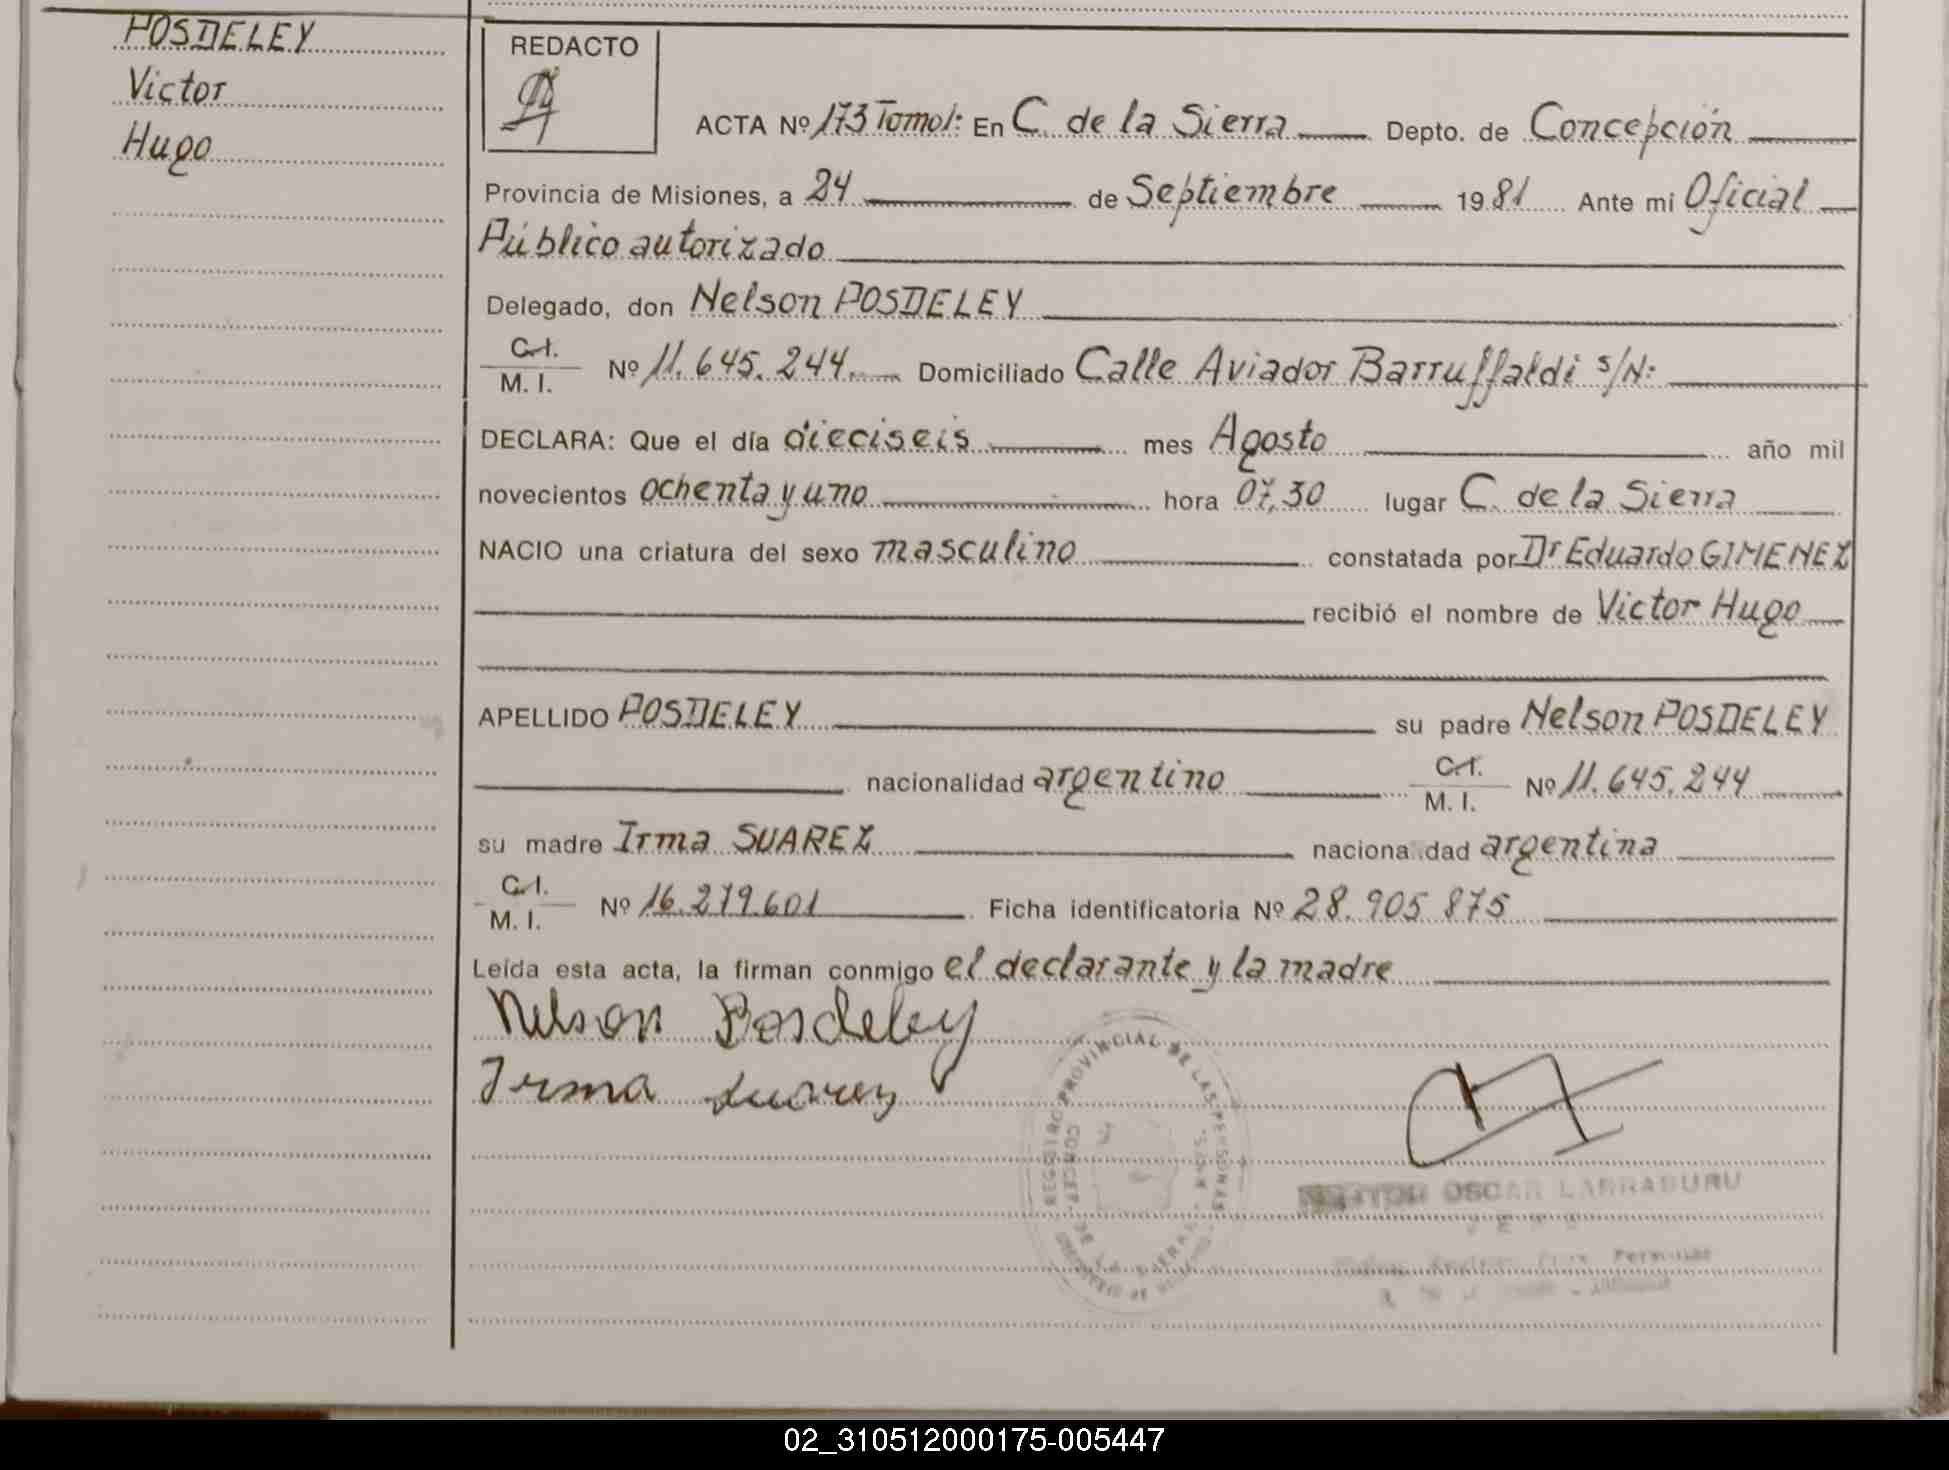 POSDELEY
Victor
Hugo
REDACTO
ACTA Nº 173 Tomo I: En C. de la Sierra Depto. de Concepción
Provincia de Misiones, a 24 de Septiembre 1981 Ante mi Oficial
Público autorizado
Delegado, don Nelson POSDELEY
C.I.
M. I. Nº 11.645.244. Domiciliado Calle Aviador Barruffaldi s/N:
DECLARA: Que el día dieciseis mes Agosto año mil
novecientos ochenta y uno hora 07,30 lugar C. de la Sierra
NACIO una criatura del sexo masculino constatada por Dr Eduardo GIMENEZ
recibió el nombre de Victor Hugo
APELLIDO POSDELEY su padre Nelson POSDELEY
nacionalidad argentino C.I. M. I. Nº 11.645.244
su madre Irma SUAREZ naciona dad argentina
C.I.
M. I. Nº 16.279.601 Ficha identificatoria Nº 28.905 875
Leída esta acta, la firman conmigo el declarante y la madre
Nelson Posdeley
Irma Suarez
REGISTRO PROVINCIAL DE LAS PERSONAS
CONCEP. DE LA SIERRA
OSCAR LARRABURU
02_310512000175-005447